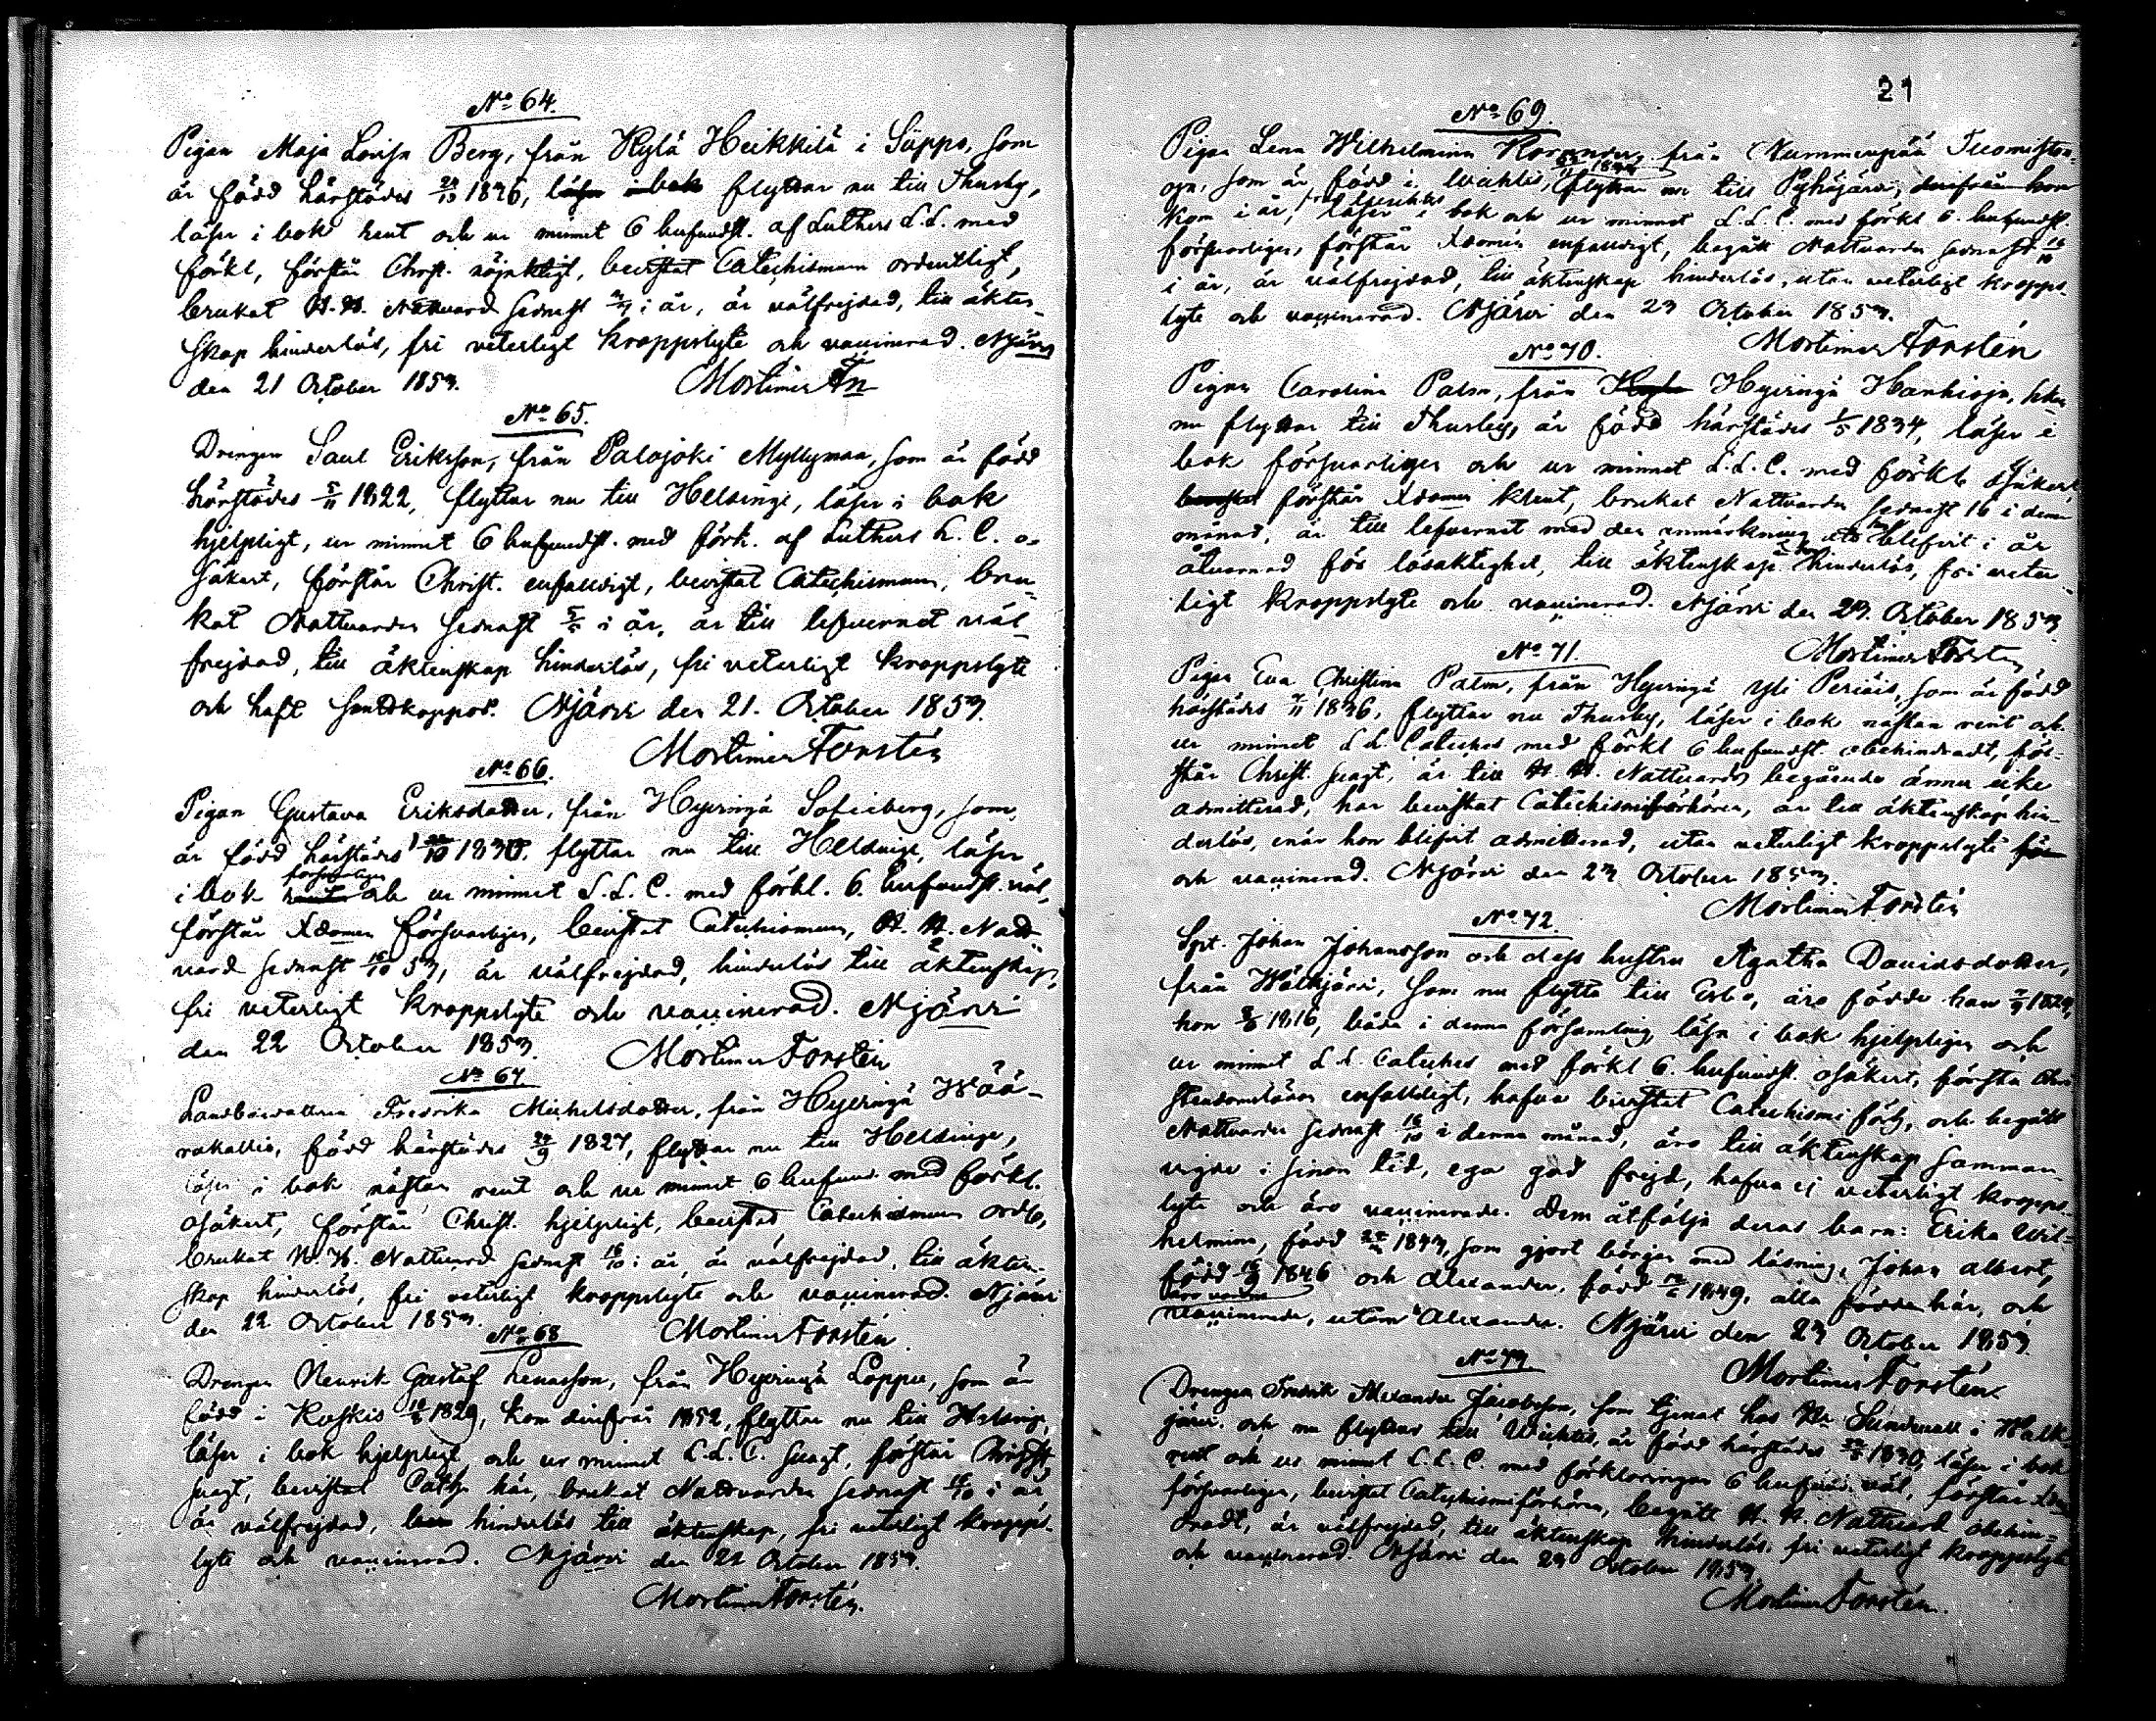 No 64.
Pigan Maja Lovisa Berg, från Kylä Heikkilä i Süppo, som
är född härstädes 1836, läser i bok flyttar nu till Thusby,
läser i bok rent och ur minnet 6 hufvudst. af Luthers L.C. med
förkl, förstår Christ. nöjaktigt, bevistat Catechismum ordentligt,
brukat H.H. Nattvard sednast i år, är välfrejdad, till äkten-
skap hinderlös, fri veterligt kroppslyte och vaccinerad. Njärvi
den 21 October 1853. Mortimer Fn
No 65.
Drengen Saul Eriksson, från Palojoki Myllymaa, som är född
härstädes 5/11 1822, flyttar nu till Helsinge, läser i bok
hjelpligt, ur minnet 6 hufvudst. med förk. af Luthers L.C. o-
säkert, förstår Christ. enfaldigt, bevistat Catechismum, bru-
kat Nattvarden sednast i år, är till lefvernet väl-
frejdad, till äktenskap hinderlös, fri veterligt kroppslyte
och haft handkoppor. Njärvi den 21. October 1853.
Mortimer Forstén
No 66.
Pigan Gustava Eriksdotter, från Hyvingä Sofieberg, som,
är född härstädes 1830. flyttar nu till Helsinge, läser
försvarligen
i bok rent och ur minnet L.L.C. med förkl. 6. hufvudst. väl,
förstår Xdomen försvarligen, bevistat Catechismum, H.H. Natt-
vard sednast 16/10 53, är välfrejdad, hinderlös till äktenskap,
fri veterligt kroppslyte och vaccinerad. Njärvi
den 22 October 1853. Mortimer Forstén
No 67
Fredrika Michelsdotter, från Hyvingä Wää-
rakallio, född härstädes 1827, flyttar nu till Helsinge,
läser i bok nästan rent och ur minnet 6 hufvud. med förkl.
osäkert, förstår Christ. hjelpligt, bevistat Catechismum ordtl,
brukat H.H. Nattvard sednast 16/10 i år, är välfrejdad, till äkten-
skap hinderlös, fri veterligt kroppslyte och vaccinerad. Njärvi
den 22 October 1853. Mortimer Forstén.
No 68
Drengen Henrik Gustaf Lenasson, från Hyvingä Loppu, som är
född i Kuskis 1829, kom därifrån 1852, flyttar nu till Helsinge,
läser i bok hjelpligt och ur minnet L.L.C. svagt, förstår Christ.
svagt, bevistat Catch här, brukat Nattvarden sednast 16/10 i år
är välfrejdad, hinderlös till äktenskap, fri veterligt kropps-
lyte och vaccinerad. Njärvi den 22 October 1853.
Mortimer Forstén.
21
No 69.
Pigan Lena Wilhelmina från Nummenpää Tuomiston-
som är född i Wichtis, flyttar nu till Pyhäjärvi, derifrån hon
kom i år, läser i bok och ur minnet L.L.C. med förkl 6. hufvudst.
försvarligen, förstår Xdomen enfaldigt, begått Nattvarden sednast 16/10
i år, är välfrejdad, till äktenskap hinderlös, utan veterligt kropps-
lyte och vaccinerad. Njärvi den 23 October 1853.
Mortimer Forstén
No 70.
Pigan Carolina Palm, från Hyvingä Hanhioja,
nu flyttar till Thusby, är född härstädes 1/5 1834, läser i
bok försvarligen och ur minnet L.L.C. med förkl. osäkert,
bevistat förstår Xdomen klent, brukat Nattvarden sednast 16 i denna
månad, är till lefvernet med den anmärkning att hon blifvit i år
åtvarnad för lösaktighet, till äktenskap hinderlös, fri veter-
ligt kroppslyte och vaccinerad. Njärvi den 23. October 1853
Mortimer Forstén
No 71.
Pigan Eva Christina Palm, från Hyvingä Yli Periäis, som är född
härstädes 1836, flyttar nu Thusby, läser i bok nästan rent och
ur minnet L.L. Cateches med förkl 6 hufvudst. obehindradt, för-
står Christ. svagt, är till H.H. Nattvards begående ännu icke
admitterad, har bevistat Catechismiförhören, är till äktenskap hin-
derlös, enär hon blifvit admitterad, utan veterligt kroppslyte för
och vaccinerad. Njärvi den 23 October 1853.
Mortimer Forstén
No 72.
Johan Johansson och dess hustru Agatha Davidsdotter,
från Wälkjärvi, som nu flytta till Esbo, äro födde han 1829,
hon 1816, båda i denna församling, läsa i bok hjelpligen och
ur minnet L.L. Cateches med förkl 6. hufvudst. osäkert, förstå Chri-
stendomsläran enfaldigt, hafva bevistat Catechismi förh, och begått
Nattvarden sednast 16/10 i denna månad, äro till äktenskap samman-
vigde i sinom tid, ega god frejd, hafva ej veterligt kropps-
lyte och äro vaccinerade. Dem åtfölja deras barn: Erika Wil-
helmina, född 1843, som gjort början med läsning, Johan Albert,
född 1846 och Alexander, född 1849, alla födde här, och
vaccinerade, utom Alexander. Njärvi den 23 October 1853.
Mortimer Forstén.
No 73
Drengen Fredrik Alexander Jacobsson, som tjenat hos Hr Sundvall i Walk-
järvi. och nu flyttar till Wichtis, är född härstädes 1830, läser i bok
rent och ur minnet L.L.C. med förklaringen 6 hufvud. väl, förstår Xdom
försvarligen, bevistat Catechismiförhören, begått H.H. Nattvard obehin-
dradt, är välfrejdad, till äktenskap hinderlös, fri veterligt kroppslyte
och vaccinerad. Njärvi den 23 October 1853.
Mortimer Forstén.